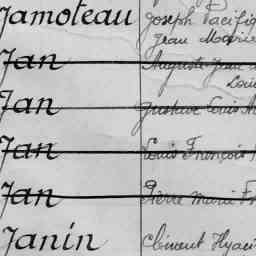 Jamoteau Joseph Pacifiq
Jean Marie
Jan Auguste Jean
Louis
Jan Gustave Louis M
Jan Louis François
Jan Pierre Marie Fr
Janin Clément Hyaci